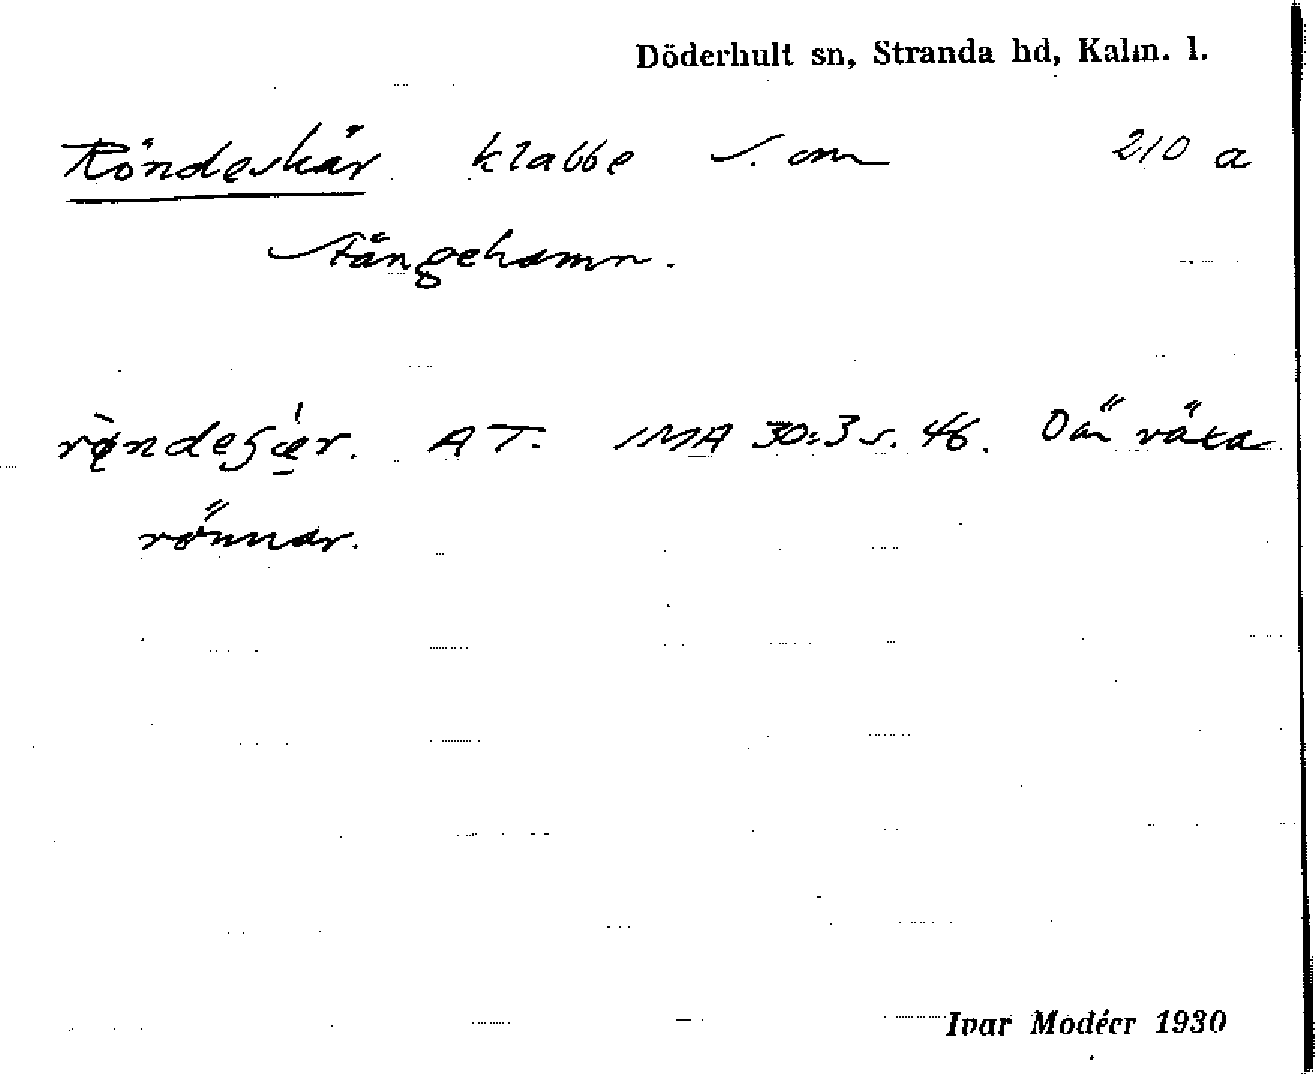 Döderhult sn, Stranda hd, Kalm. l.
Röndeskär klabbe S. om 210 a
Stångehamn.
AT. IMA 30:3 s. 46. Där växa
rönnar.
Ivar Modéer 1930